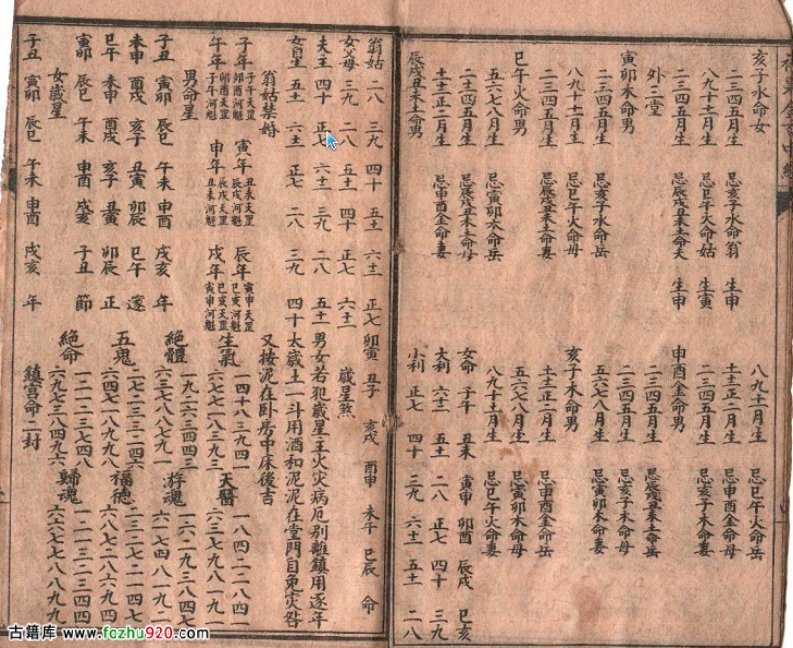 亥子水命女
二三四五月生 忌亥子水命翁 生申
八九十十一月生 忌巳午火命姑 生寅
二三四五月生 忌辰戌丑未土命夫 生申
外三堂
寅卯木命男
二三四五月生 忌亥子水命岳
八九十十一月生 忌巳午火命母
二三四五月生 忌辰戌丑未土命妻
巳午火命男
五六七八月生 忌寅卯木命岳
二三四五月生 忌辰戌丑未土命母
十二正二月生 忌申酉金命妻
辰戌丑未土命男
八九十十一月生 忌巳午火命岳
十二正二月生 忌申酉金命母
二三四五月生 忌亥子水命妻
申酉金命男
二三四五月生 忌辰戌丑未土命岳
二三四五月生 忌亥子水命母
五六七八月生 忌寅卯木命妻
亥子水命男
十二正二月生 忌申酉金命岳
五六七八月生 忌寅卯木命母
八九十十一月生 忌巳午火命妻
女命 子午 丑未 寅申 卯酉 辰戌 巳亥
大利 六十二 五十一 二八 正七 四十 三九
小利 正七 四十 三九 六十二 五十一 二八
翁姑 二八 三九 四十 五十一 六十二 正七 卯寅 丑子 亥戌 酉申 未午 巳辰 命
女父母 三九 二八 五十一 四十 正七 六十二 歲星煞
夫主 四十 正七 六十二 三九 二八 五十一 男女若犯歲星主火灾病厄别離鎮用逐年
女皇 五十一 六十二 正七 二八 三九 四十 太歲土一斗用酒和泥泥在堂門自免灾咎
翁姑禁婚 又按泥在卧房中床後吉
子年 子午天罡 卯酉河魁 寅年 丑未天罡 辰戌河魁 辰年 寅申天罡 巳亥河魁
午年 卯酉天罡 子午河魁 申年 辰戌天罡 丑未河魁 戌年 巳亥天罡 寅申河魁
男命星
子丑 寅卯 辰巳 午未 申酉 戌亥 年
未申 酉戌 亥子 丑寅 卯辰 巳午 逐
巳午 酉戌 亥子 丑寅 卯辰 正
寅卯 辰巳 午未 申酉 戌亥 子丑 節
女歲星
子丑 寅卯 辰巳 午未 申酉 戌亥 年
生氣 一四 一八 三九 四一 六七 七一 八三 九三
天醫 一八 四二 二八 四一 六三 七九 八一 九七
絕體 一九 二六 三四 四三 六三 七八 八七 九一
游魂 一六 二九 三八 四七 六一 七四 八一 九二
五鬼 一七 二三 三二 四六 六四 七一 八九 九八
福德 一三 二七 三一 四七 六八 七二 八六 九四
絕命 一二 二一 三七 四八 六九 七三 八四 九六
歸魂 一一 二二 三三 四四 六六 七七 八八 九九
鎮宫命二封
古籍库 www.fozhu920.com